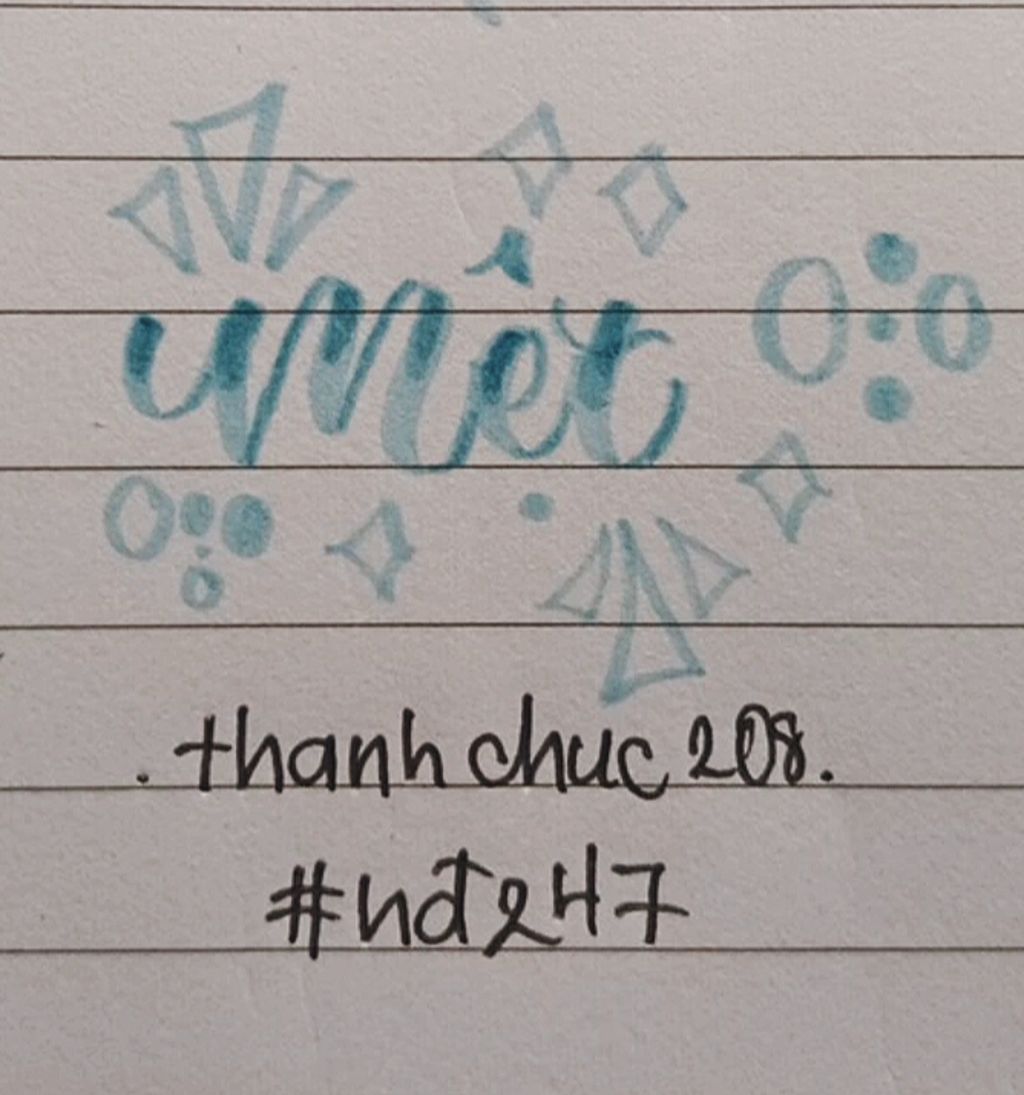 mệt
. thanh chuc 208.
#nđ247